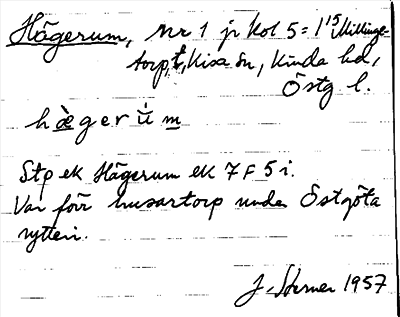 Hägerum, Nr 1 jr kol 5 = 1/15 Millinge-
torp, Kisa sn, Kinda hd,
Östg l.
h æ̀ g e r ú̄ m
Stp ek Hägerum ek 7 F 5 i.
Var förr husartorp under Östgöta
rytteri.
J. Sterner 1957